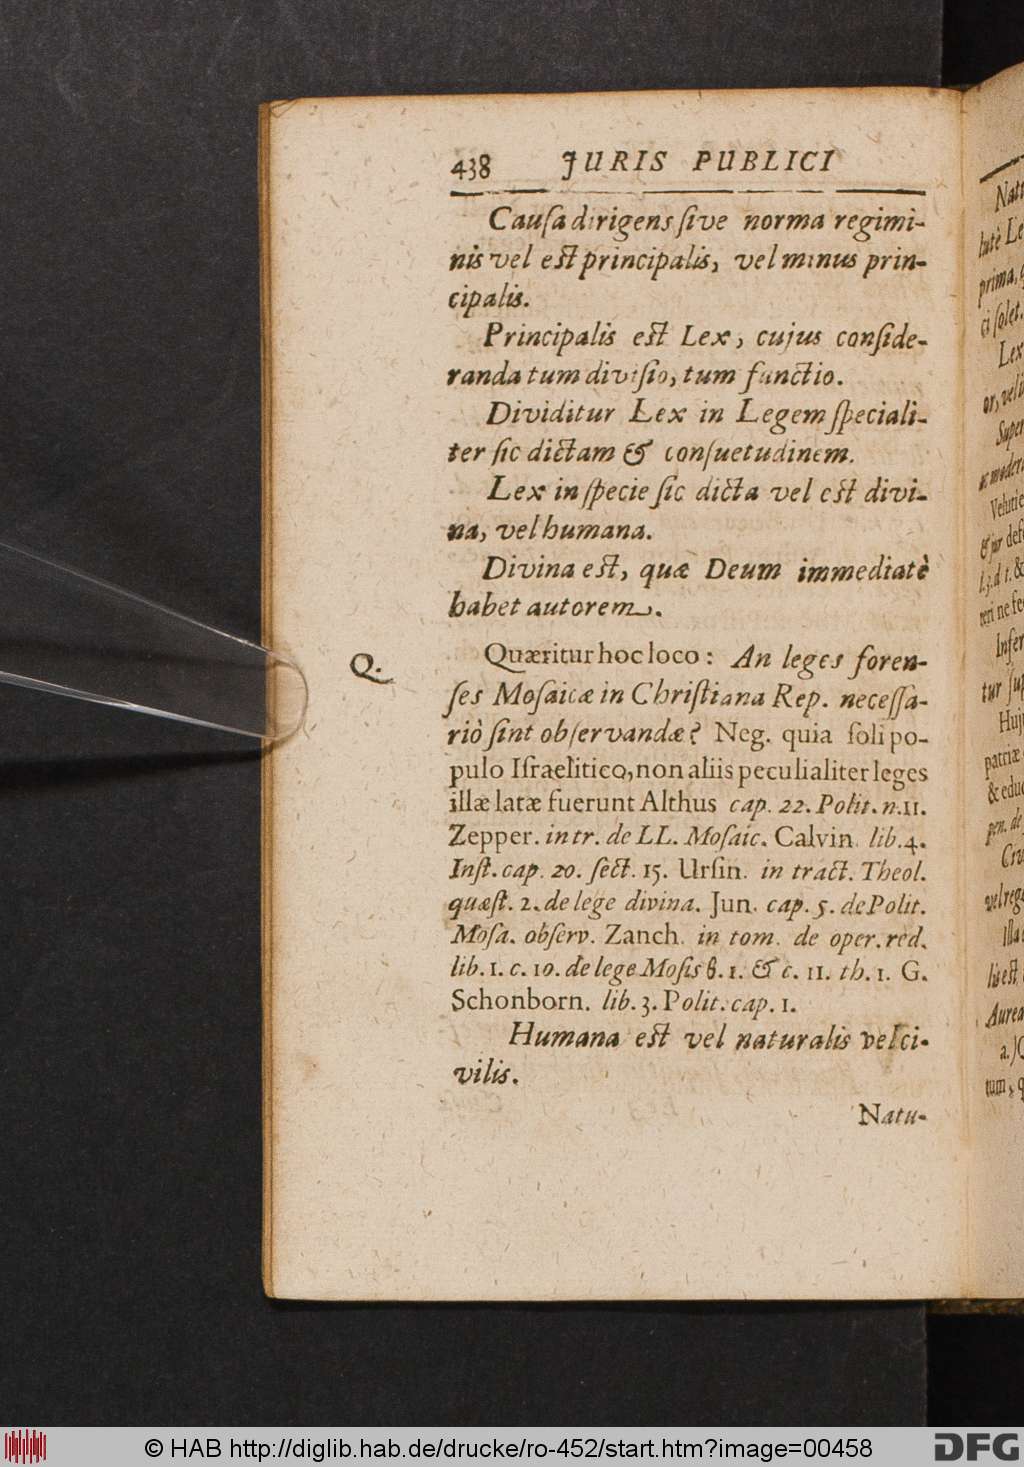 438 JURIS PUBLICI
Cauſa dirigens ſive norma regimi-
nis vel est principalis, vel minus prin-
cipalis.
Principalis est Lex, cujus conſide-
randa tum diviſio, tum functio.
Dividitur Lex in Legem ſpeciali-
ter ſic dictam & conſuetudinem.
Lex in ſpecie ſic dicta vel est divi-
na, vel humana.
Divina est, quæ Deum immediatè
habet autorem.
Q. Quæritur hoc loco: An leges foren-
ſes Moſaicæ in Chriſtiana Rep. neceſſa-
riò ſint obſervandæ? Neg. quia ſoli po-
pulo Iſraelitico, non aliis peculialiter leges
illæ latæ fuerunt Althus cap. 22. Polit. n. 11.
Zepper. in tr. de LL. Moſaic. Calvin. lib. 4.
Inſt. cap. 20. ſect. 15. Urſin. in tract. Theol.
quæſt. 2. de lege divina. Jun. cap. 5. de Polit.
Moſa. obſerv. Zanch. in tom. de oper. red.
lib. 1. c. 10. de lege Moſis 6. 1. & c. 11. th. 1. G.
Schonborn. lib. 3. Polit. cap. 1.
Humana est vel naturalis vel ci-
vilis.
Natu-
lutè Le
prima,
ci ſolet.
Lex
Super
Velutie
teri ne
Inſer
tur
Huj
patriæ
& edu
pen. de
vel reg
Illa
lis est
Aurea
a.)
tum,
© HAB http://diglib.hab.de/drucke/ro-452/start.htm?image=00458
DFG